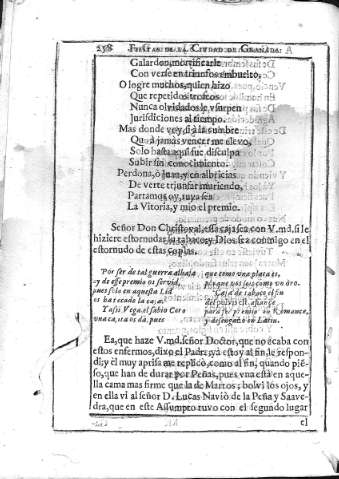 258 FIESTAS DE LA CIUDAD DE GRANADA.
Galardon mortificarle
Con verse en triunfos embuelto,
O logre muchos, quien hizo
Que repetidos trofeos
Nunca olvidados le vsurpen
Jurisdiciones al tiempo.
Mas donde voy, si à la cumbre
Que jamàs vencer me elevo,
Solo hasta aqui fue disculpa
Subir sin conocimiento.
Perdona, ò Juan, y en albricias
De verte triunfar muriendo,
Partamos oy, tuya sea
La Vitoria, y mio el premio.
Señor Don Christoval, esta caja sea con V.md. si le
hiziere estornudar su tabaco, y Dios sea conmigo en el
estornudo de estas coplas.
Por ser de tal guerra alhaja
y de esse premio os servid,
os
Vega, el sabio
que como una plata es,
Porque vos sois como un oro.
Caja de tabaco el fin
para premio Romance,
y en Latin.
Ea, que haze V.md. señor Doctor, que no acaba con
estos enfermos, dixo el Padre, yà estoy al fin le respon-
di; y èl muy aprisa me replicò, como al fin, quando piẽ-
so, que han de durar por Peñas, pues vna està en aque-
lla cama mas firme que la de Martos; bolvi los ojos, y
en ella vi al señor D. Lucas Naviò de la Peña y Saave-
dra, que en este Assumpto tuvo con el segundo lugar
el